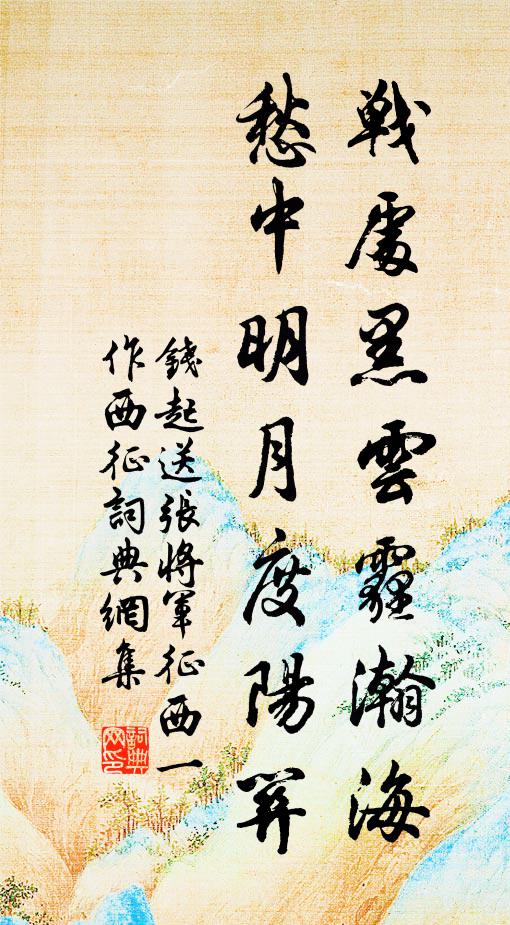 戰處黑雲霾瀚海
愁中明月度陽關
錢起送張將軍征西一
作西征詞典網集
詞典
網印